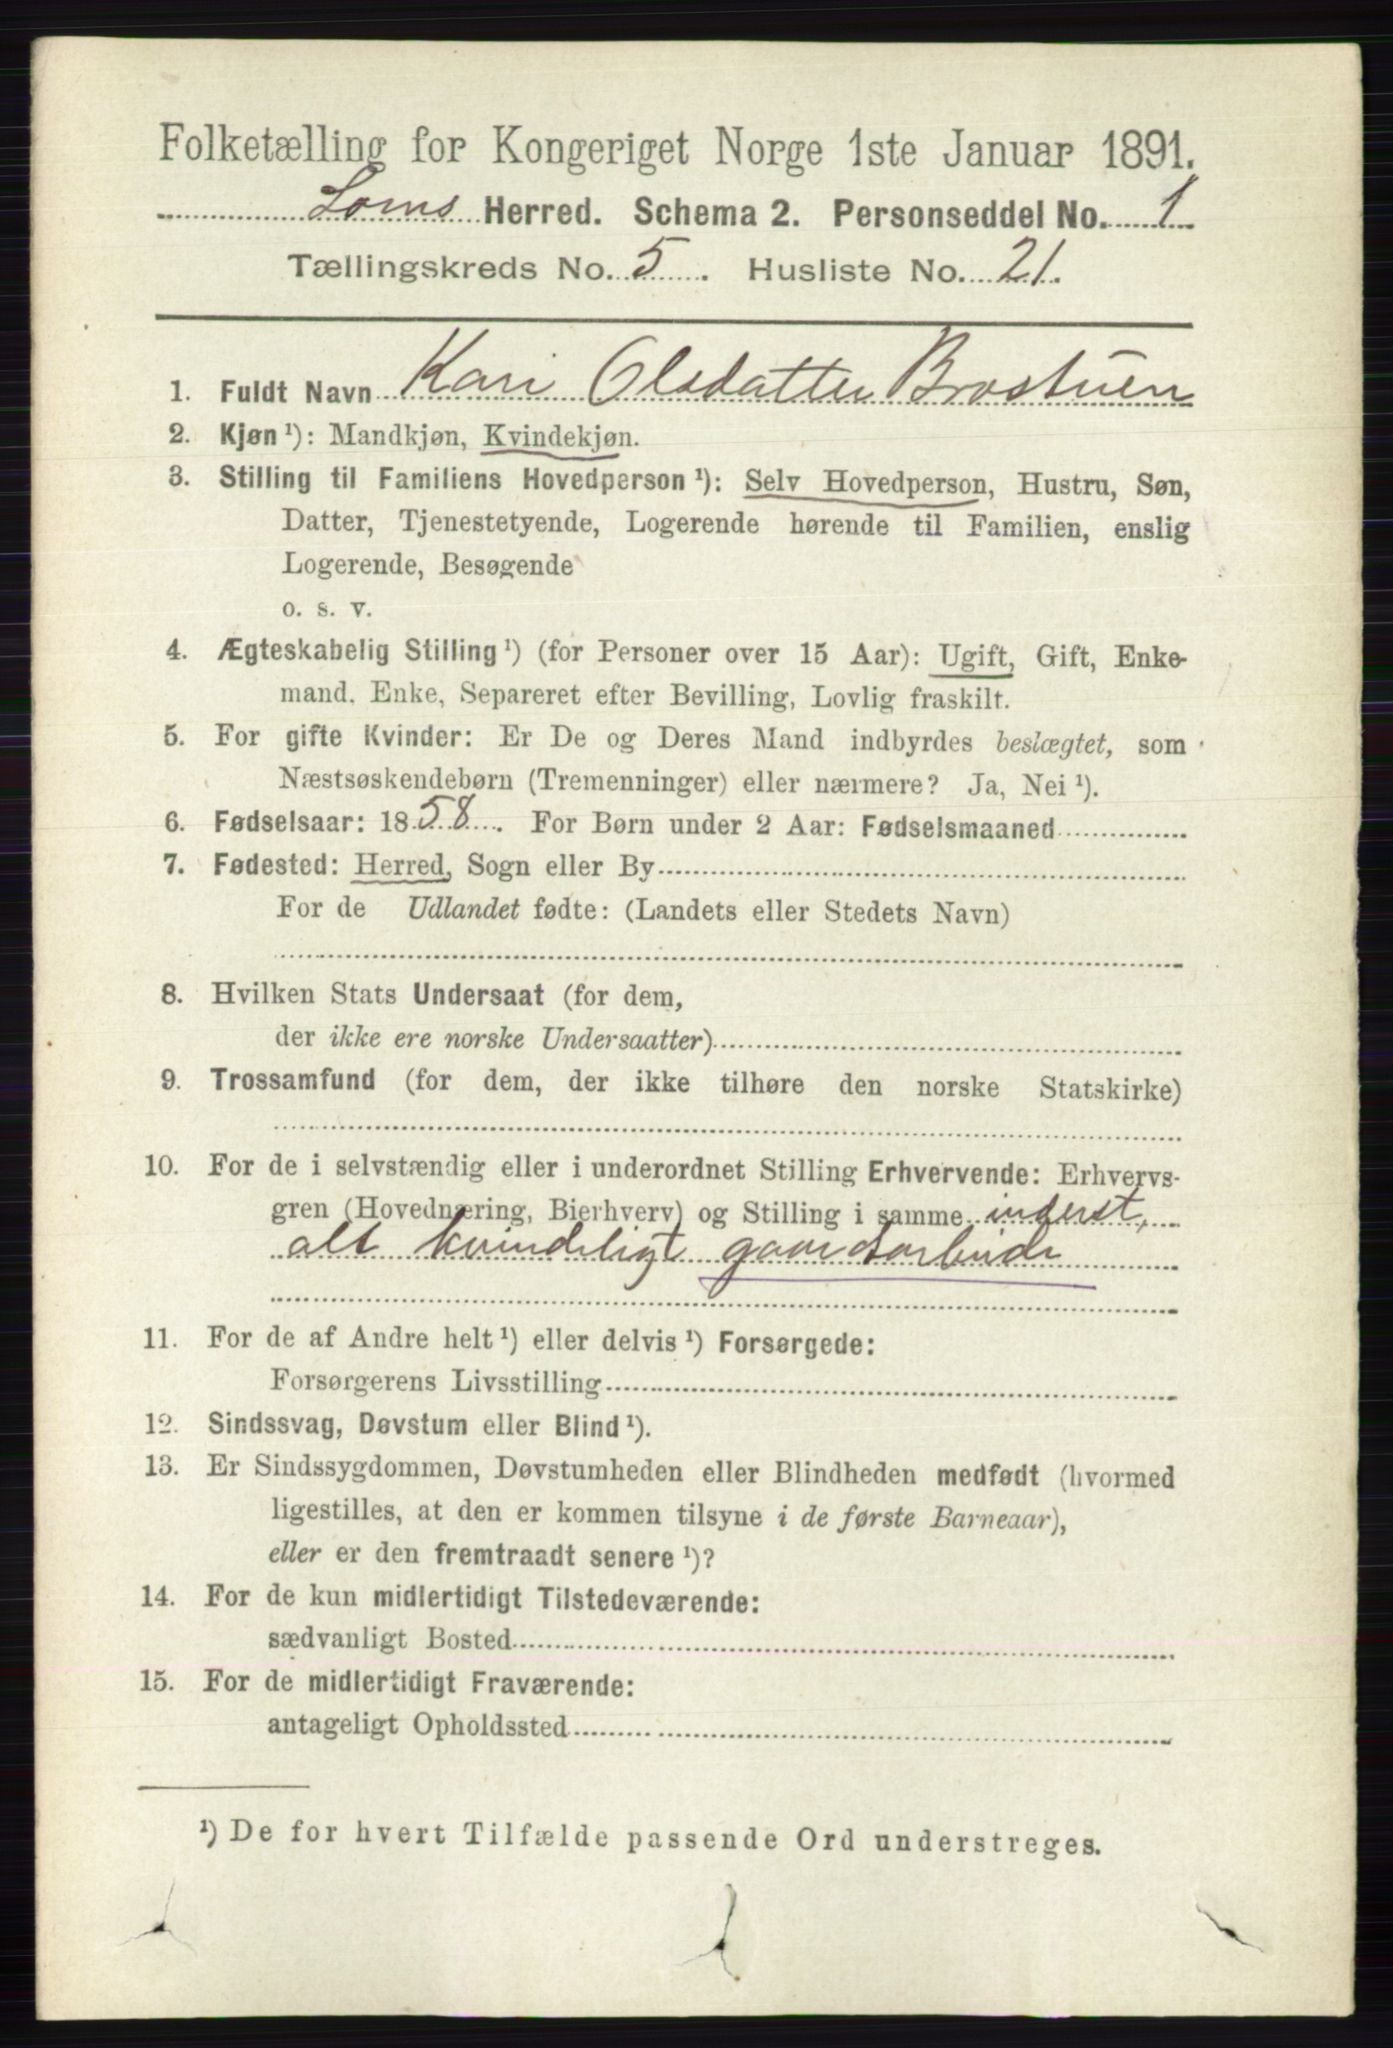 Folketælling for Kongeriget Norge 1ste Januar 1891.
Loms Herred. Schema 2. Personseddel No. 1
Tællingskreds No. 5. Husliste No. 21.
1. Fuldt Navn Kari Olsdatter Brostuen
2. Kjøn ¹): Mandkjøn, Kvindekjøn.
3. Stilling til Familiens Hovedperson ¹): Selv Hovedperson, Hustru, Søn,
Datter, Tjenestetyende, Logerende hørende til Familien, enslig
Logerende, Besøgende
o. s. v.
4. Ægteskabelig Stilling ¹) (for Personer over 15 Aar): Ugift, Gift, Enke-
mand, Enke, Separeret efter Bevilling, Lovlig fraskilt.
5. For gifte Kvinder: Er De og Deres Mand indbyrdes beslægtet, som
Næstsøskendebørn (Tremenninger) eller nærmere? Ja, Nei ¹).
6. Fødselsaar: 1858. For Børn under 2 Aar: Fødselsmaaned
7. Fødested: Herred, Sogn eller By
For de Udlandet fødte: (Landets eller Stedets Navn)
8. Hvilken Stats Undersaat (for dem,
der ikke ere norske Undersaatter)
9. Trossamfund (for dem, der ikke tilhøre den norske Statskirke)
10. For de i selvstændig eller i underordnet Stilling Erhvervende: Erhvervs-
gren (Hovednæring, Bierhverv) og Stilling i samme inderst,
alt kvindeligt gaardsarbeide
11. For de af Andre helt ¹) eller delvis ¹) Forsørgede:
Forsørgerens Livsstilling
12. Sindssvag, Døvstum eller Blind ¹).
13. Er Sindssygdommen, Døvstumheden eller Blindheden medfødt (hvormed
ligestilles, at den er kommen tilsyne i de første Barneaar),
eller er den fremtraadt senere ¹)?
14. For de kun midlertidigt Tilstedeværende:
sædvanligt Bosted
15. For de midlertidigt Fraværende:
antageligt Opholdssted
¹) De for hvert Tilfælde passende Ord understreges.